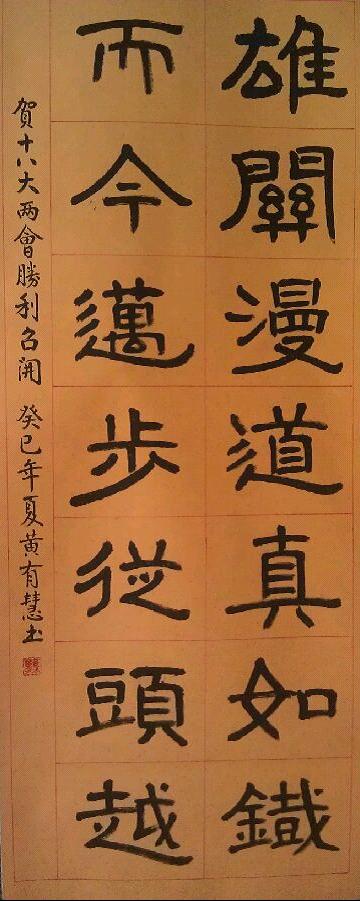 雄關漫道真如鐵
而今邁步從頭越
賀十八大两會勝利召開 癸巳年夏黄有慧书